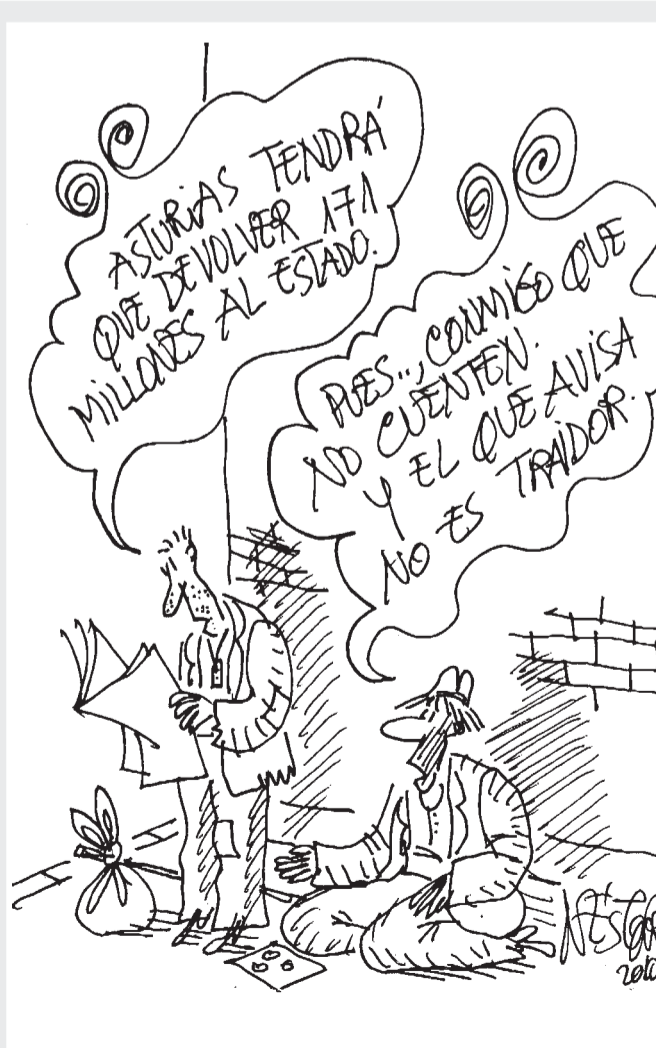 ASTURIAS TENDRÁ
QUE DEVOLVER 171
MILLONES AL ESTADO.
PUES.., CONMIGO QUE
NO CUENTEN.
Y EL QUE AVISA
NO ES TRAIDOR.
NÉSTOR